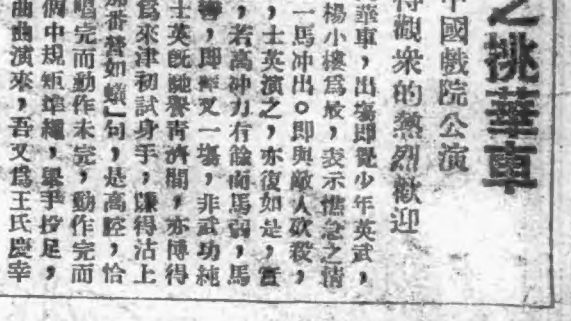 之挑華車
中國戲院公演
得觀衆的熱烈歡迎
華車，出塲即覺少年英武，
楊小樓爲最，表示憔急之情
一馬冲出。即與敵人砍殺，
，士英演之，亦復如是，實
，若萬冲力有餘而馬弱，馬
，即義又一塲，非武功純
士英旣馳譽靑濟間，亦博得
爲來津初試身手，賺得沽上
番賛如蟻」句，是高腔，恰
唱完而動作未完，動作完而
個中規矩準繩，舉手投足，
曲曲演來，吾又爲王氏慶幸